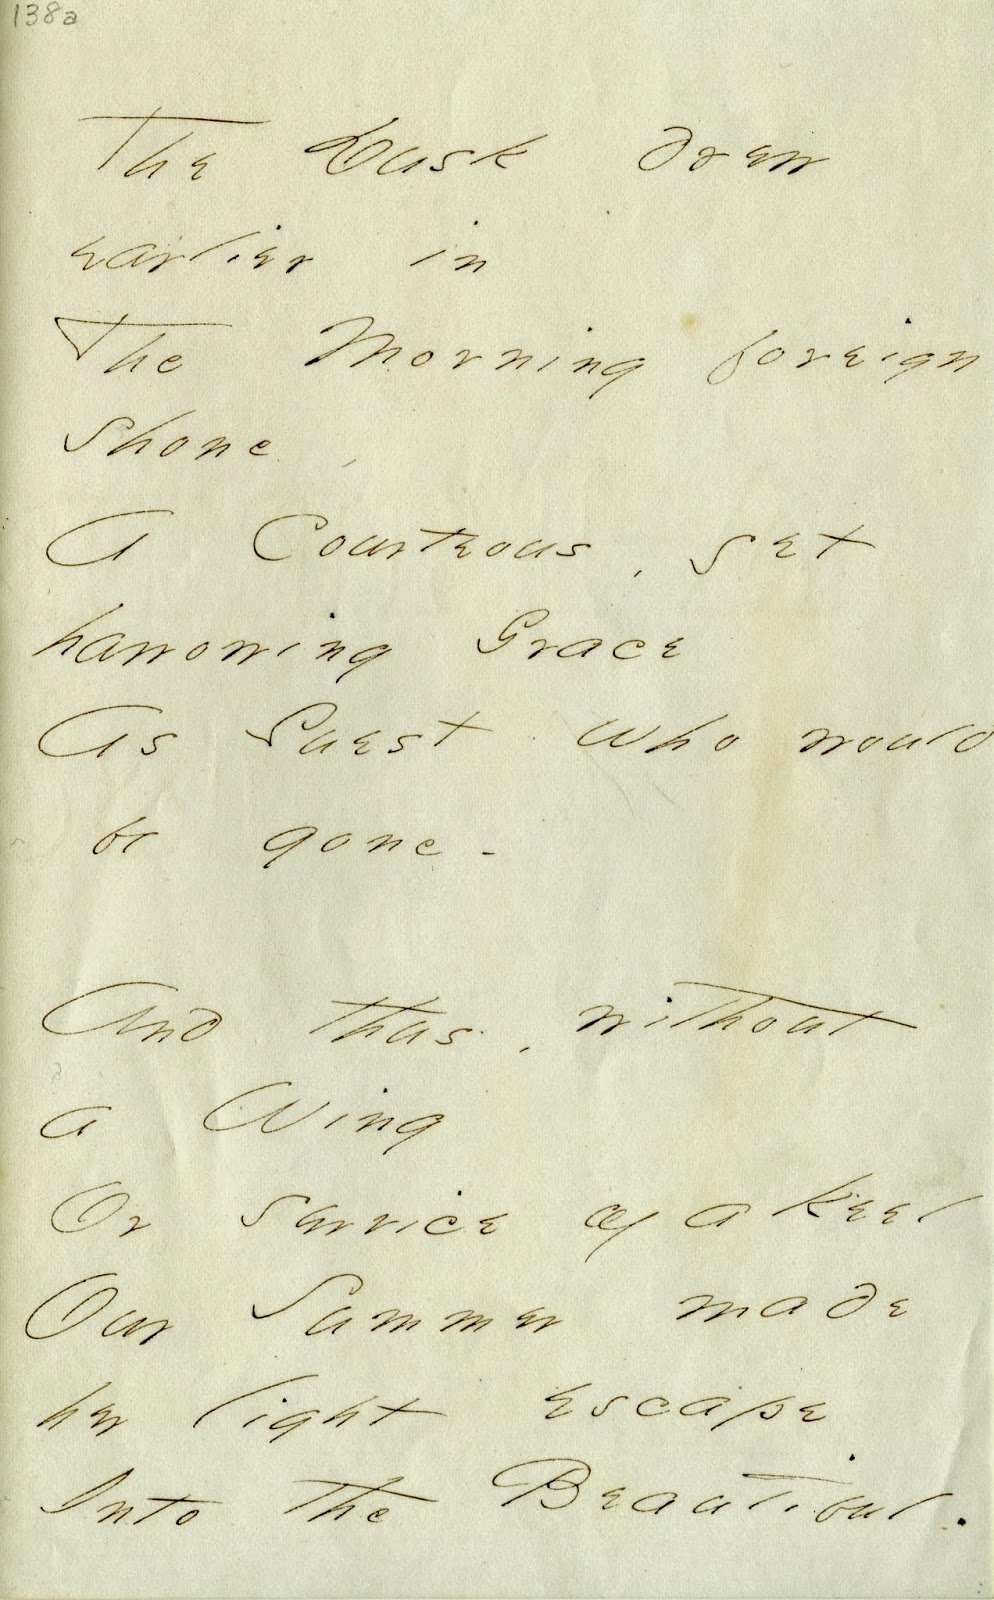 138a
The Dusk drew
earlier in
The Morning foreign
shone,
A Courteous, yet
harrowing Grace
As Guest who would
be gone -
And thus, without
a Wing
Or service of a Keel
Our Summer made
her light escape
Into the Beautiful.